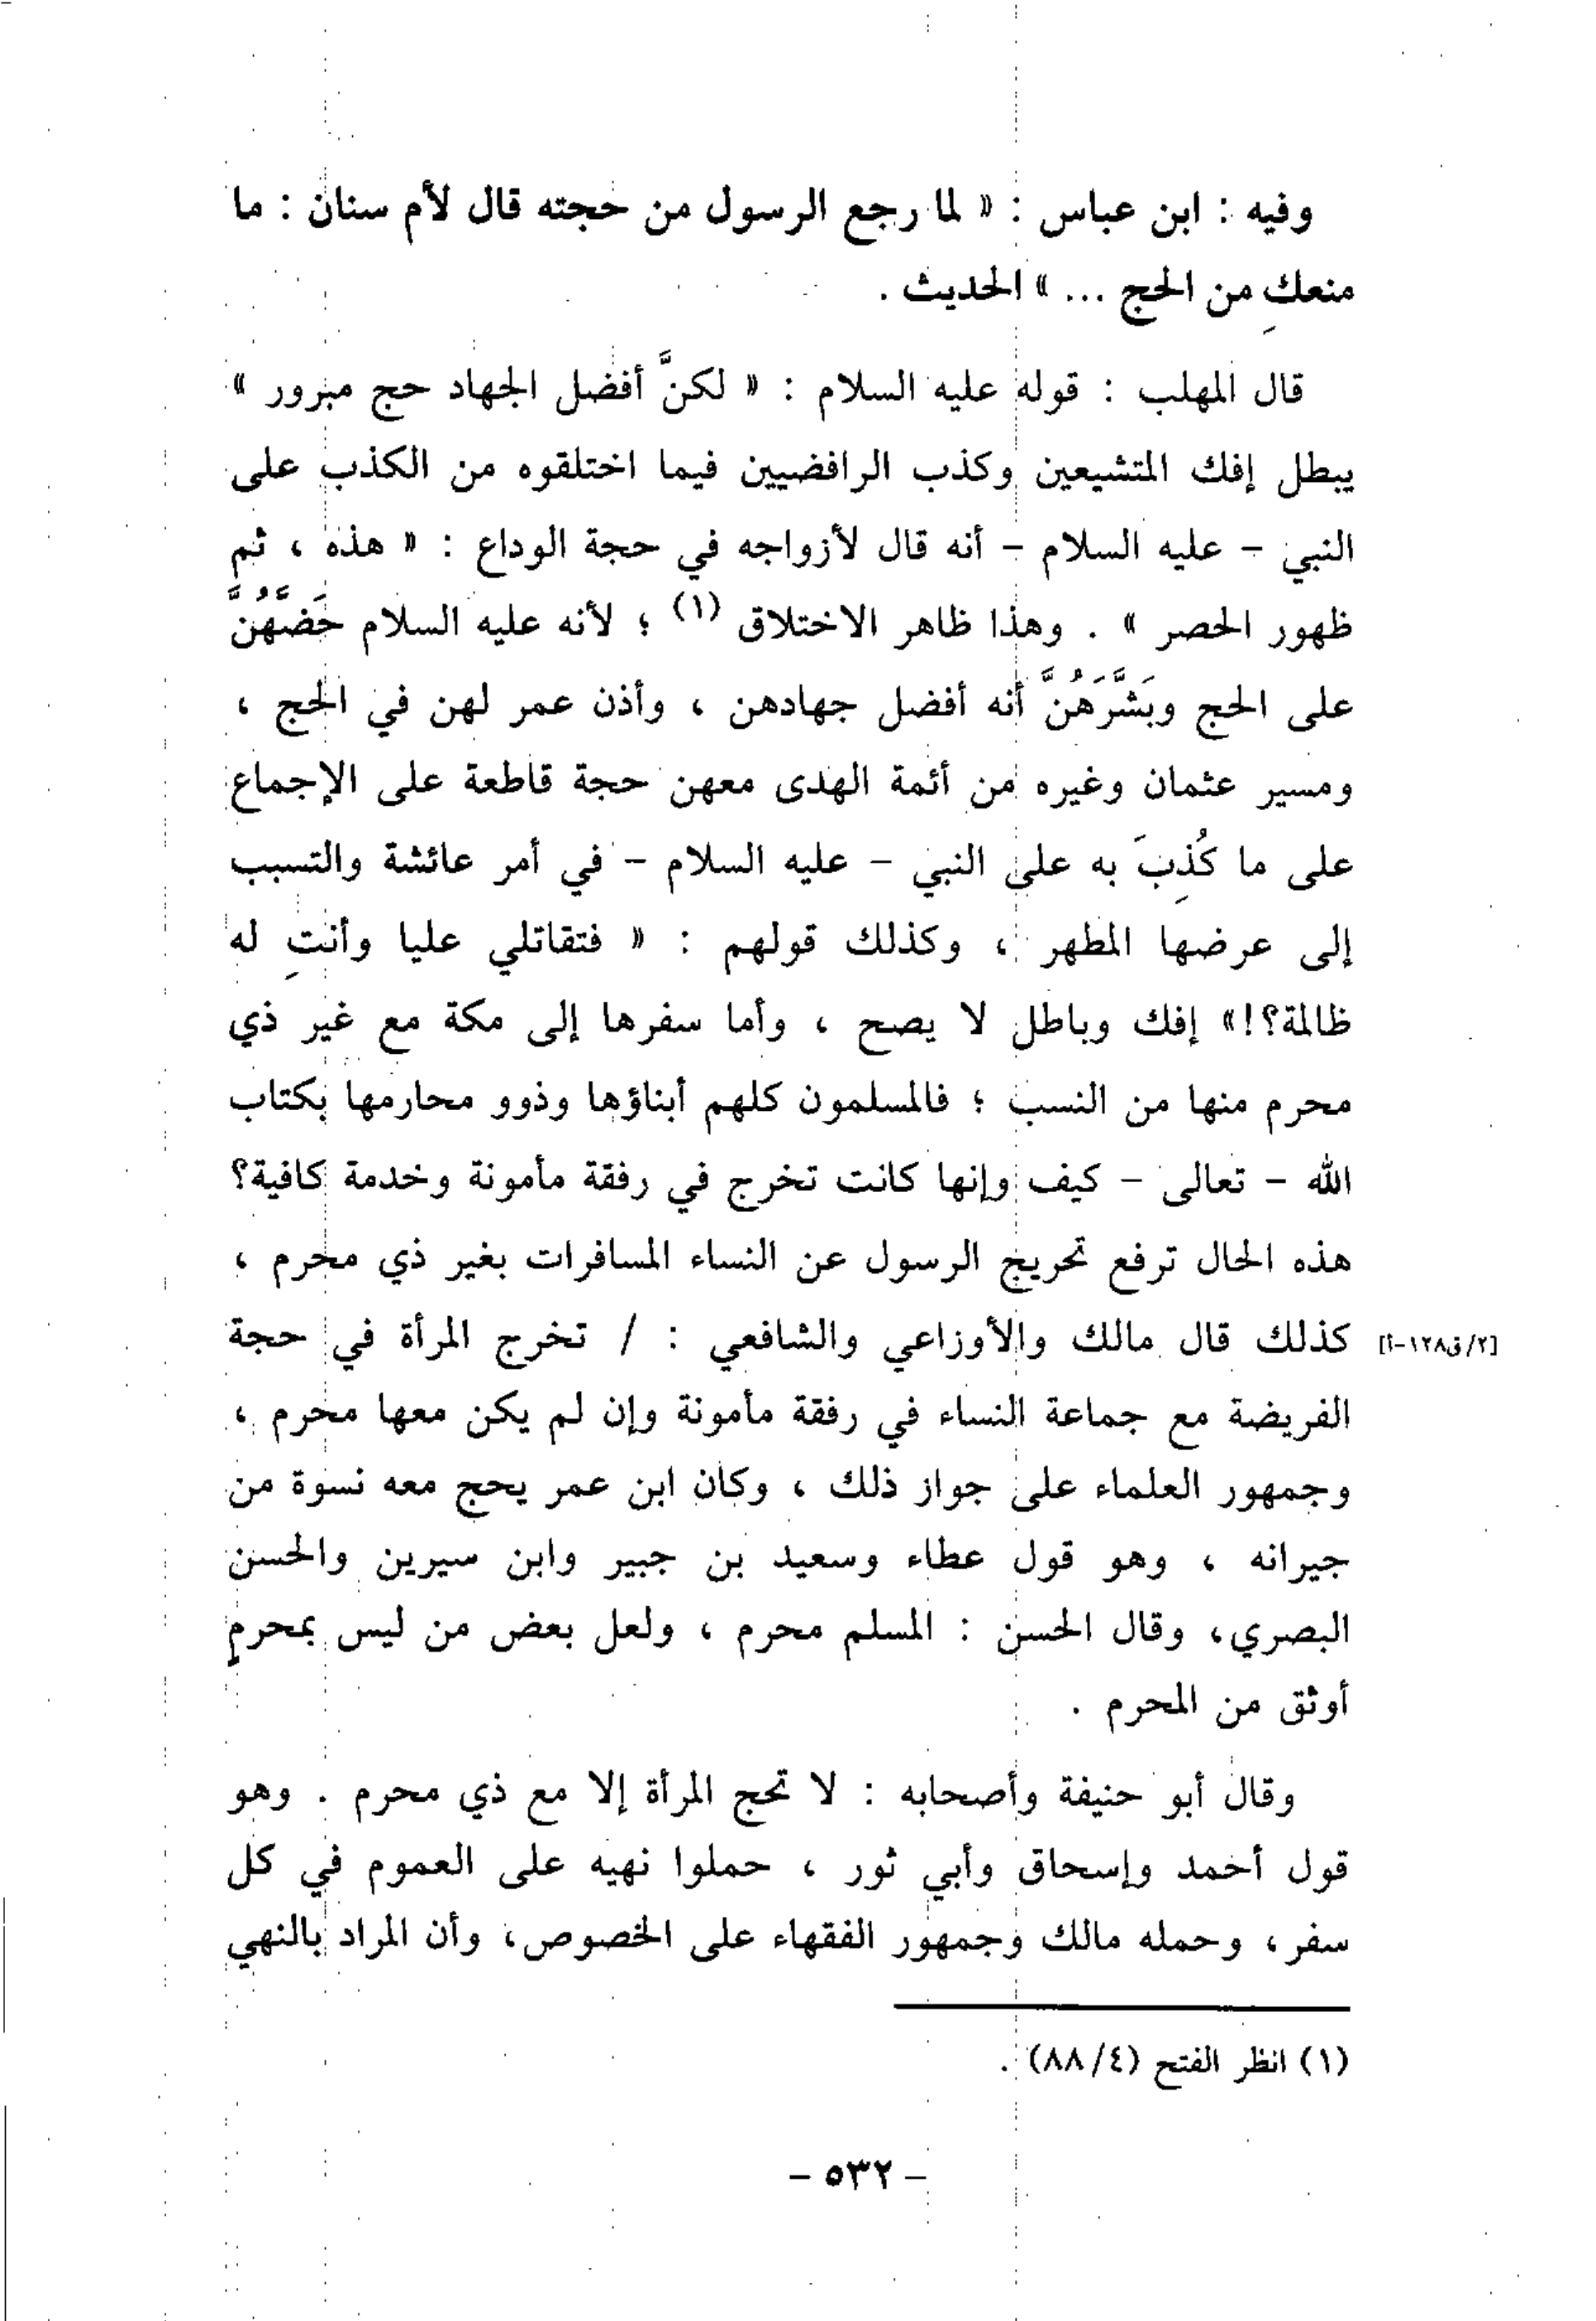 وفيه : ابن عباس : « لما رجع الرسول من حجته قال لأم سنان : ما
منعكِ من الحج ... » الحديث .
قال المهلب : قوله عليه السلام : « لكنَّ أفضل الجهاد حج مبرور »
يبطل إفك المتشيعين وكذب الرافضيين فيما اختلقوه من الكذب على
النبي - عليه السلام - أنه قال لأزواجه في حجة الوداع : « هذه ، ثم
ظهور الحصر » . وهذا ظاهر الاختلاق (١) ؛ لأنه عليه السلام حَضَّهُنَّ
على الحج وبَشَّرَهُنَّ أنه أفضل جهادهن ، وأذن عمر لهن في الحج ،
ومسير عثمان وغيره من أئمة الهدى معهن حجة قاطعة على الإجماع
على ما كُذِبَ به على النبي - عليه السلام - في أمر عائشة والتسبب
إلى عرضها المطهر ، وكذلك قولهم : « فتقاتلي عليا وأنتِ له
ظالمة؟!» إفك وباطل لا يصح ، وأما سفرها إلى مكة مع غير ذي
محرم منها من النسب ؛ فالمسلمون كلهم أبناؤها وذوو محارمها بكتاب
الله - تعالى - كيف وإنها كانت تخرج في رفقة مأمونة وخدمة كافية؟
هذه الحال ترفع تحريج الرسول عن النساء المسافرات بغير ذي محرم ،
كذلك قال مالك والأوزاعي والشافعي : / تخرج المرأة في حجة [٢/ق١٢٨-أ]
الفريضة مع جماعة النساء في رفقة مأمونة وإن لم يكن معها محرم ،
وجمهور العلماء على جواز ذلك ، وكان ابن عمر يحج معه نسوة من
جيرانه ، وهو قول عطاء وسعيد بن جبير وابن سيرين والحسن
البصري، وقال الحسن : المسلم محرم ، ولعل بعض من ليس بمحرمٍ
أوثق من المحرم .
وقال أبو حنيفة وأصحابه : لا تحج المرأة إلا مع ذي محرم . وهو
قول أحمد وإسحاق وأبي ثور ، حملوا نهيه على العموم في كل
سفر، وحمله مالك وجمهور الفقهاء على الخصوص، وأن المراد بالنهي
(١) انظر الفتح (٨٨/٤) .
- ٥٣٢ -